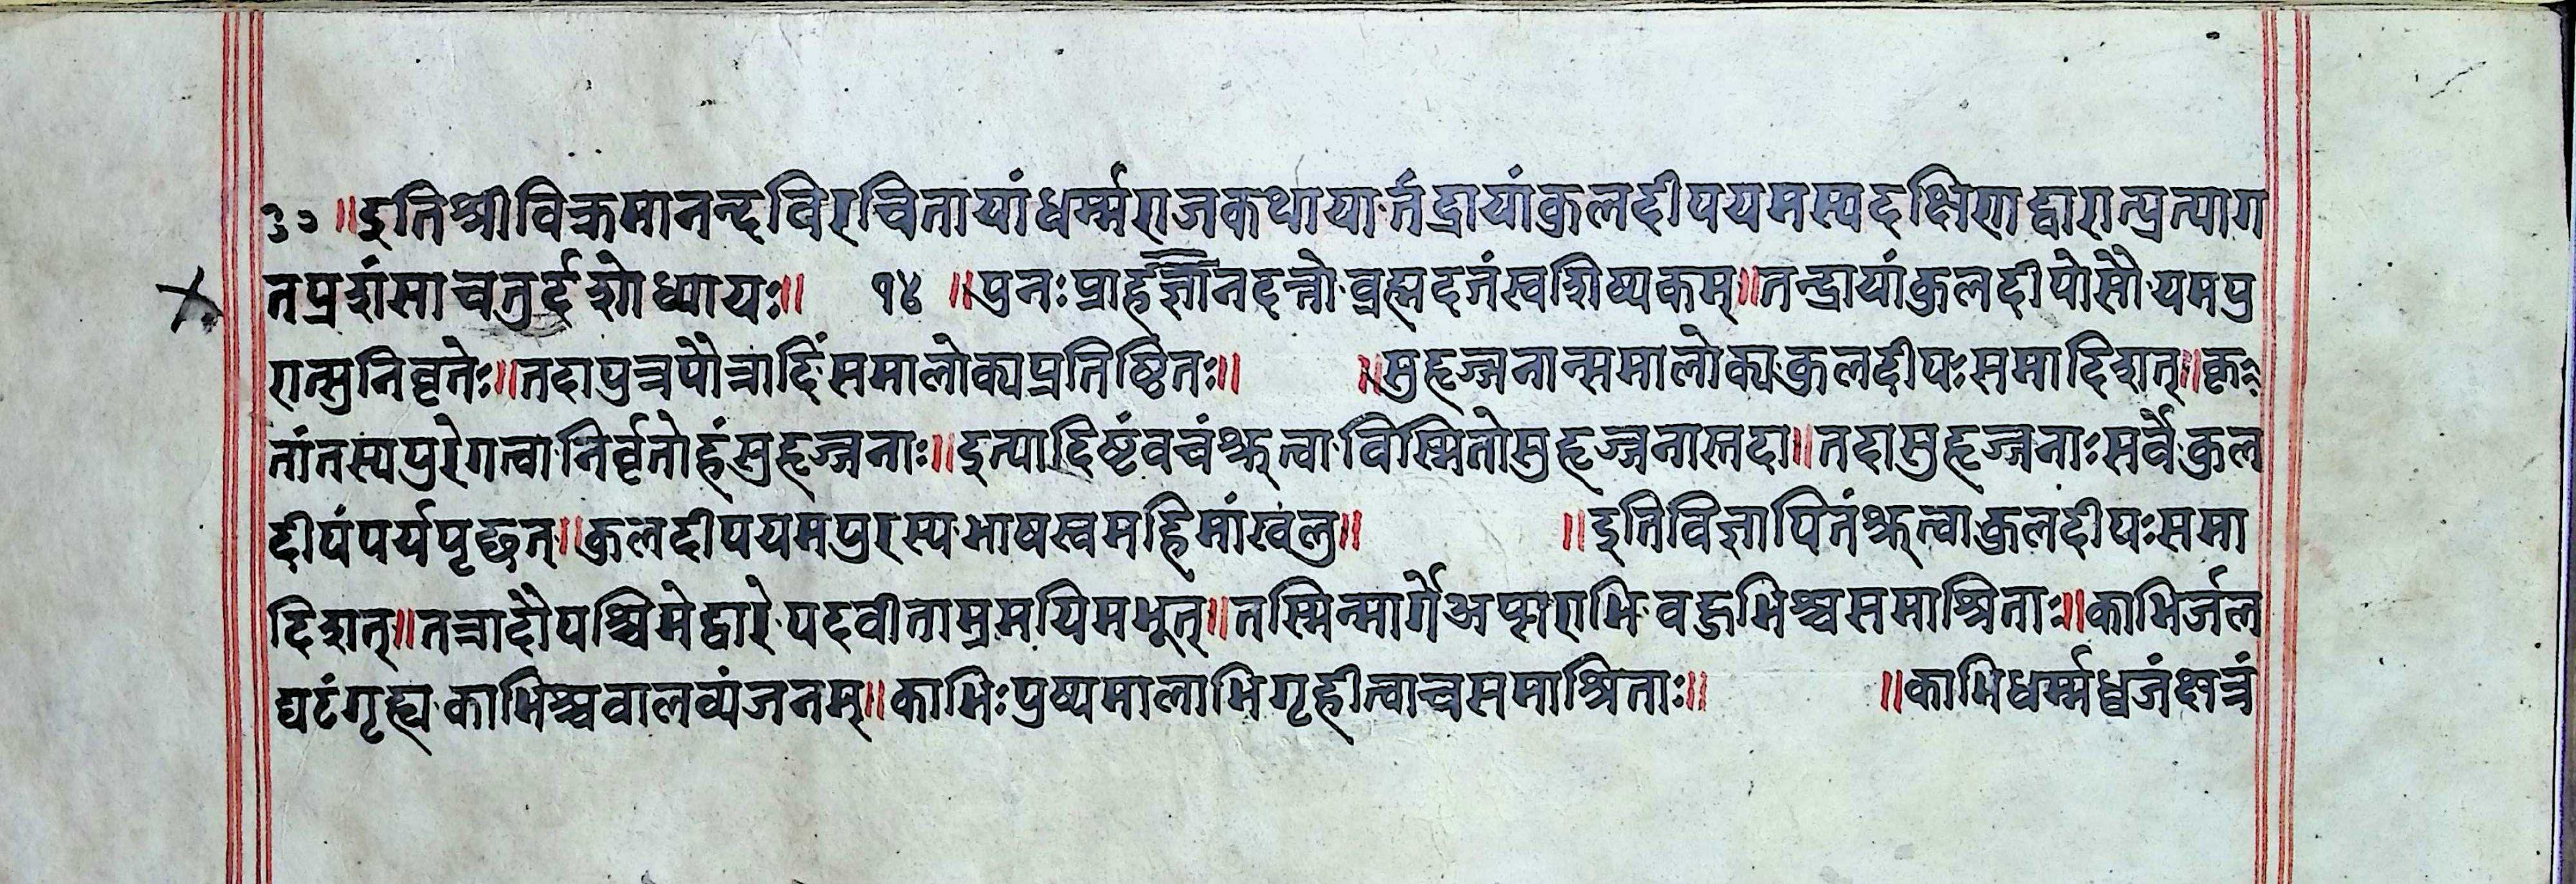 ३० ॥इतिश्रीविक्रमानन्दविरचितायांधर्म्मराजकथायार्तंद्रायांकुलदीपयमस्यदक्षिणद्वारात्प्रत्याग
तप्रशंसाचतुर्दशोध्यायः॥ १४ ॥पुनःप्राहज्ञानदत्तोब्रह्मदत्तंस्वशिष्यकम्॥तन्द्रायांकुलदीपोसौयमपु
रात्सुनिवृतेः॥तदापुत्रपौत्रादिंसमालोक्यप्रतिष्ठितः॥ ॥सुहृज्जनान्समालोक्यकुलदीपःसमादिशत्॥कृ
तांतस्यपुरेगत्वानिर्वृतोहंसुहृज्जनाः॥इत्यादिष्टंवचंश्रुत्वाविस्मितोसुहृज्जनास्तदा॥तदासुहृज्जनाःसर्वेकुल
दीपंपर्यपृच्छत्॥कुलदीपयमपुरस्यभाषस्वमहिमांखलु॥ ॥इतिविज्ञापितंश्रुत्वाकुलदीपःसमा
दिशत्॥तत्रादौपश्चिमेद्वारेपदवीताम्रमयिमभूत्॥तस्मिन्मार्गेअप्सराभिवहुभिश्चसमाश्रिताः॥काभिर्जल
घटंगृह्यकाभिश्चवालव्यंजनम्॥काभिःपुष्पमालाभिगृहीत्वाचसमाश्रिताः॥ ॥काभिधर्म्मध्वजंक्षत्रं